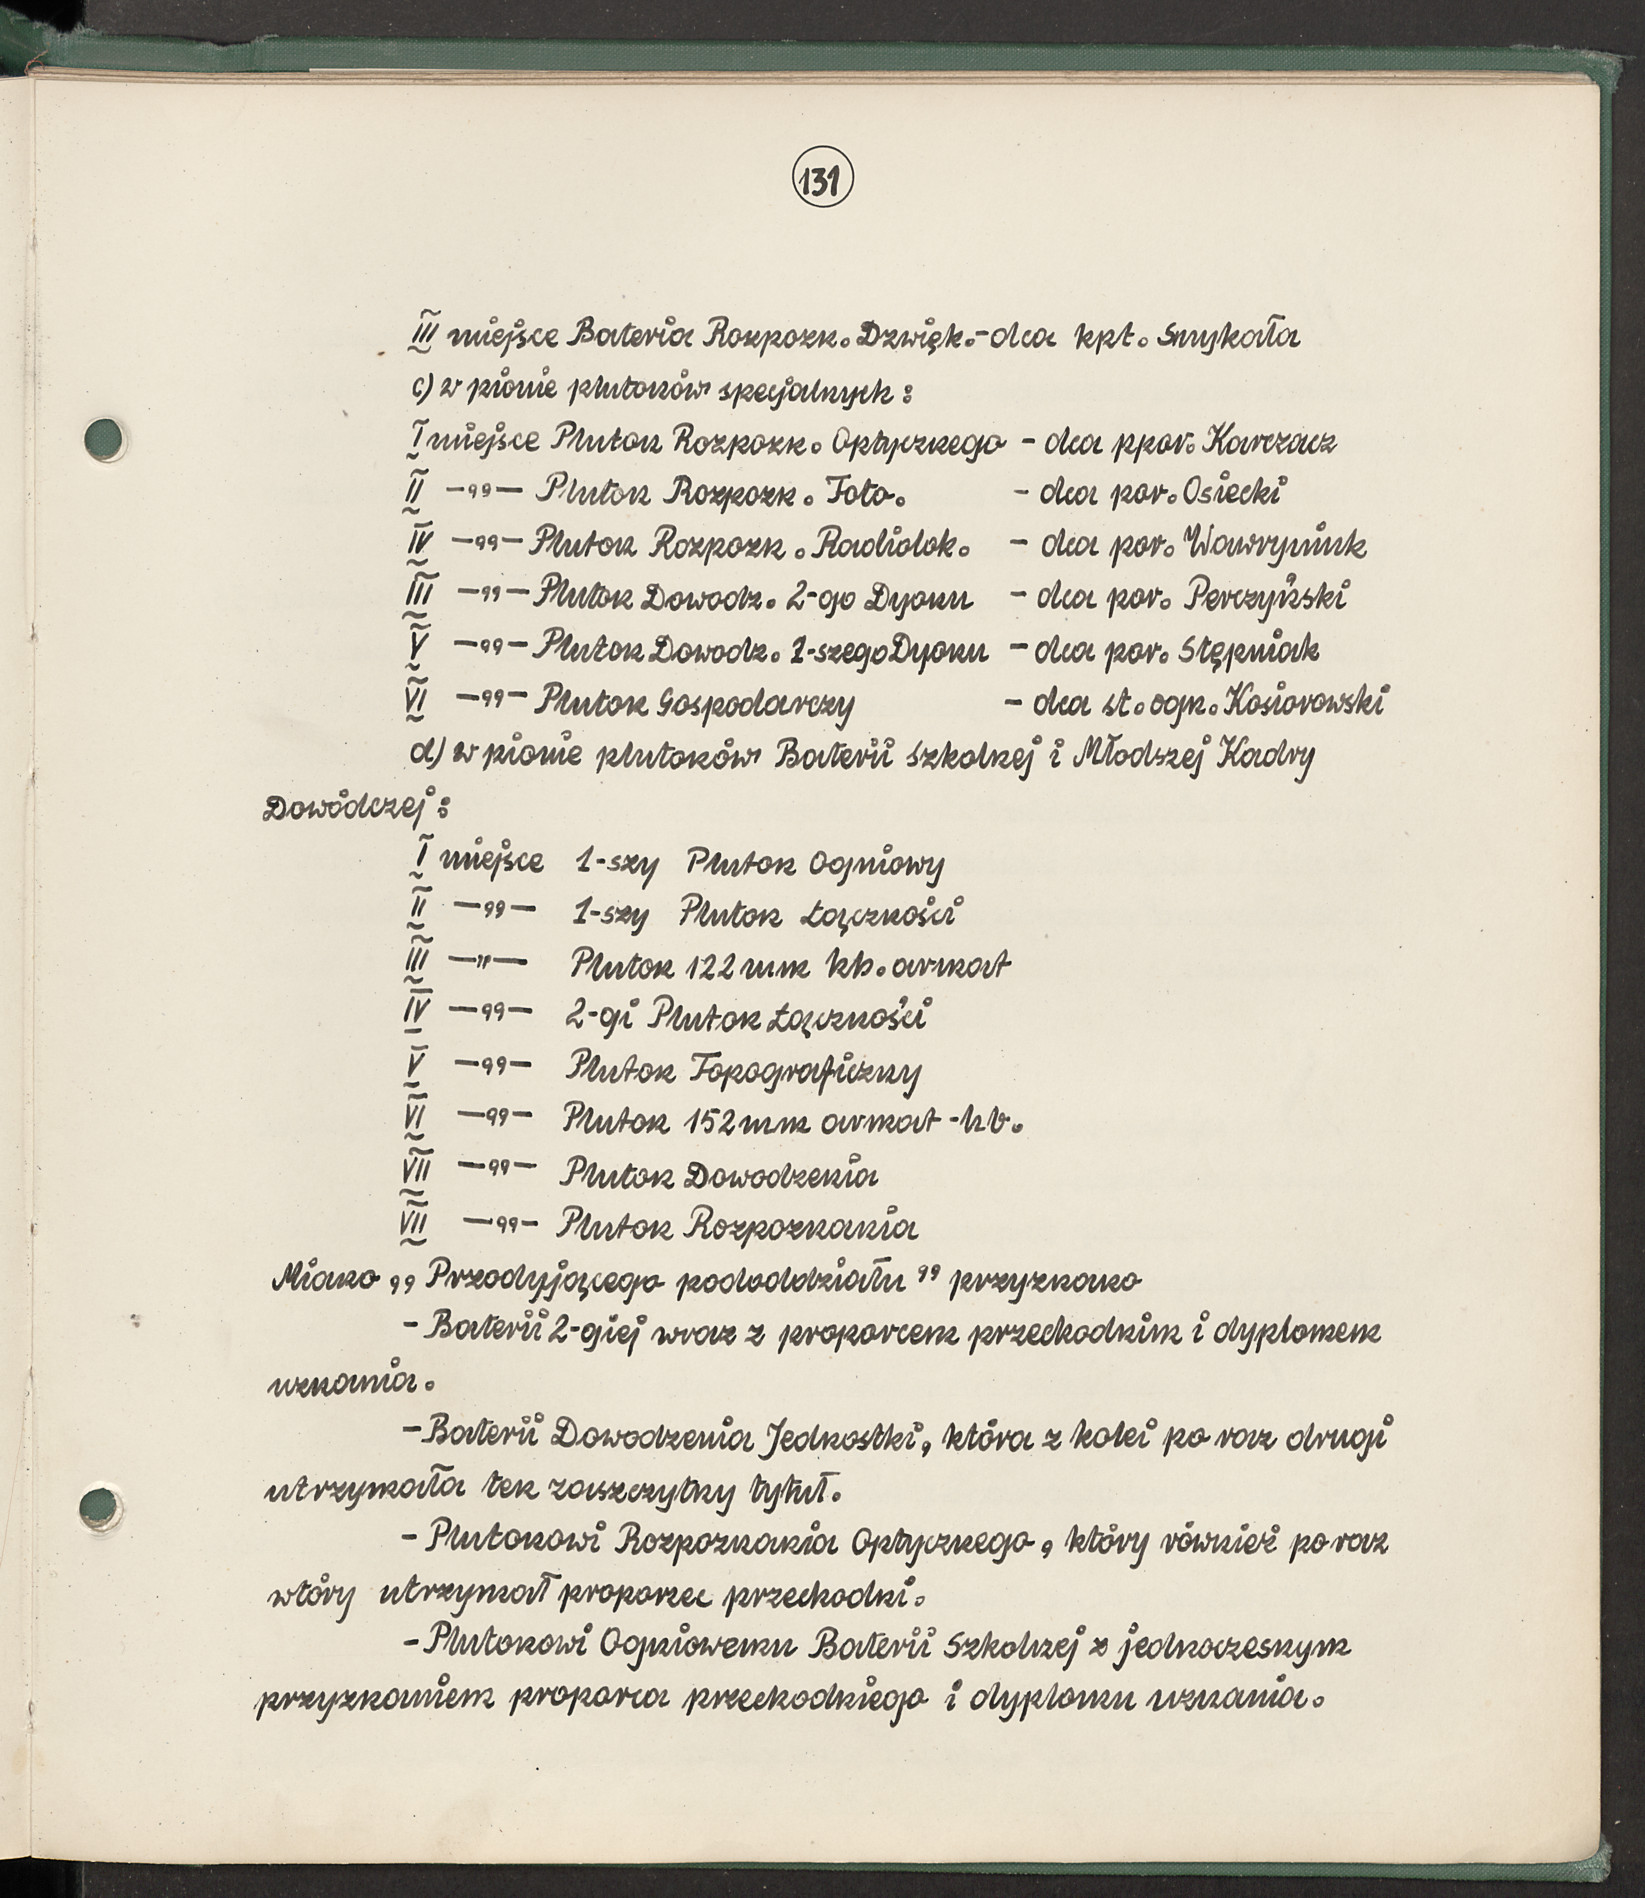 131
III miejsce Bateria Rozpozn. Dzwięk.-dca kpt. Smykała
c) w pionie plutonów specjalnych:
I miejsce Pluton Rozpozn. Optycznego - dca ppor. Karczacz
II -„- Pluton Rozpozn. Foto. - dca por. Osiecki
IV -„- Pluton Rozpozn. Radiolok. - dca por. Wawryniuk
III -„- Pluton Dowodz. 2-go Dyonu - dca por. Perczyński
V -„- Pluton Dowodz. 1-szego Dyonu - dca por. Stępniak
VI -„- Pluton Gospodarczy - dca st. ogn. Kosiorowski
d) w pionie plutonów Baterii Szkolnej i Młodszej Kadry
Dowódczej:
I miejsce 1-szy Pluton Ogniowy
II -„- 1-szy Pluton Łączności
III -„- Pluton 122 mm hb. armat
IV -„- 2-gi Pluton Łączności
V -„- Pluton Topograficzny
VI -„- Pluton 152 mm armat-hb.
VII -„- Pluton Dowodzenia
VII -„- Pluton Rozpoznania
Miano „Przodyjącego pododdziału” przyznano
- Baterii 2-giej wraz z proporcem przechodnim i dyplomem
uznania.
- Baterii Dowodzenia Jednostki, która z kolei po raz drugi
utrzymała ten zaszczytny tytuł.
- Plutonowi Rozpoznania Optycznego, który również po raz
wtóry utrzymał proporzec przechodni.
- Plutonowi Ogniowemu Baterii Szkolnej z jednoczesnym
przyznaniem proporca przechodniego i dyplomu uznania.